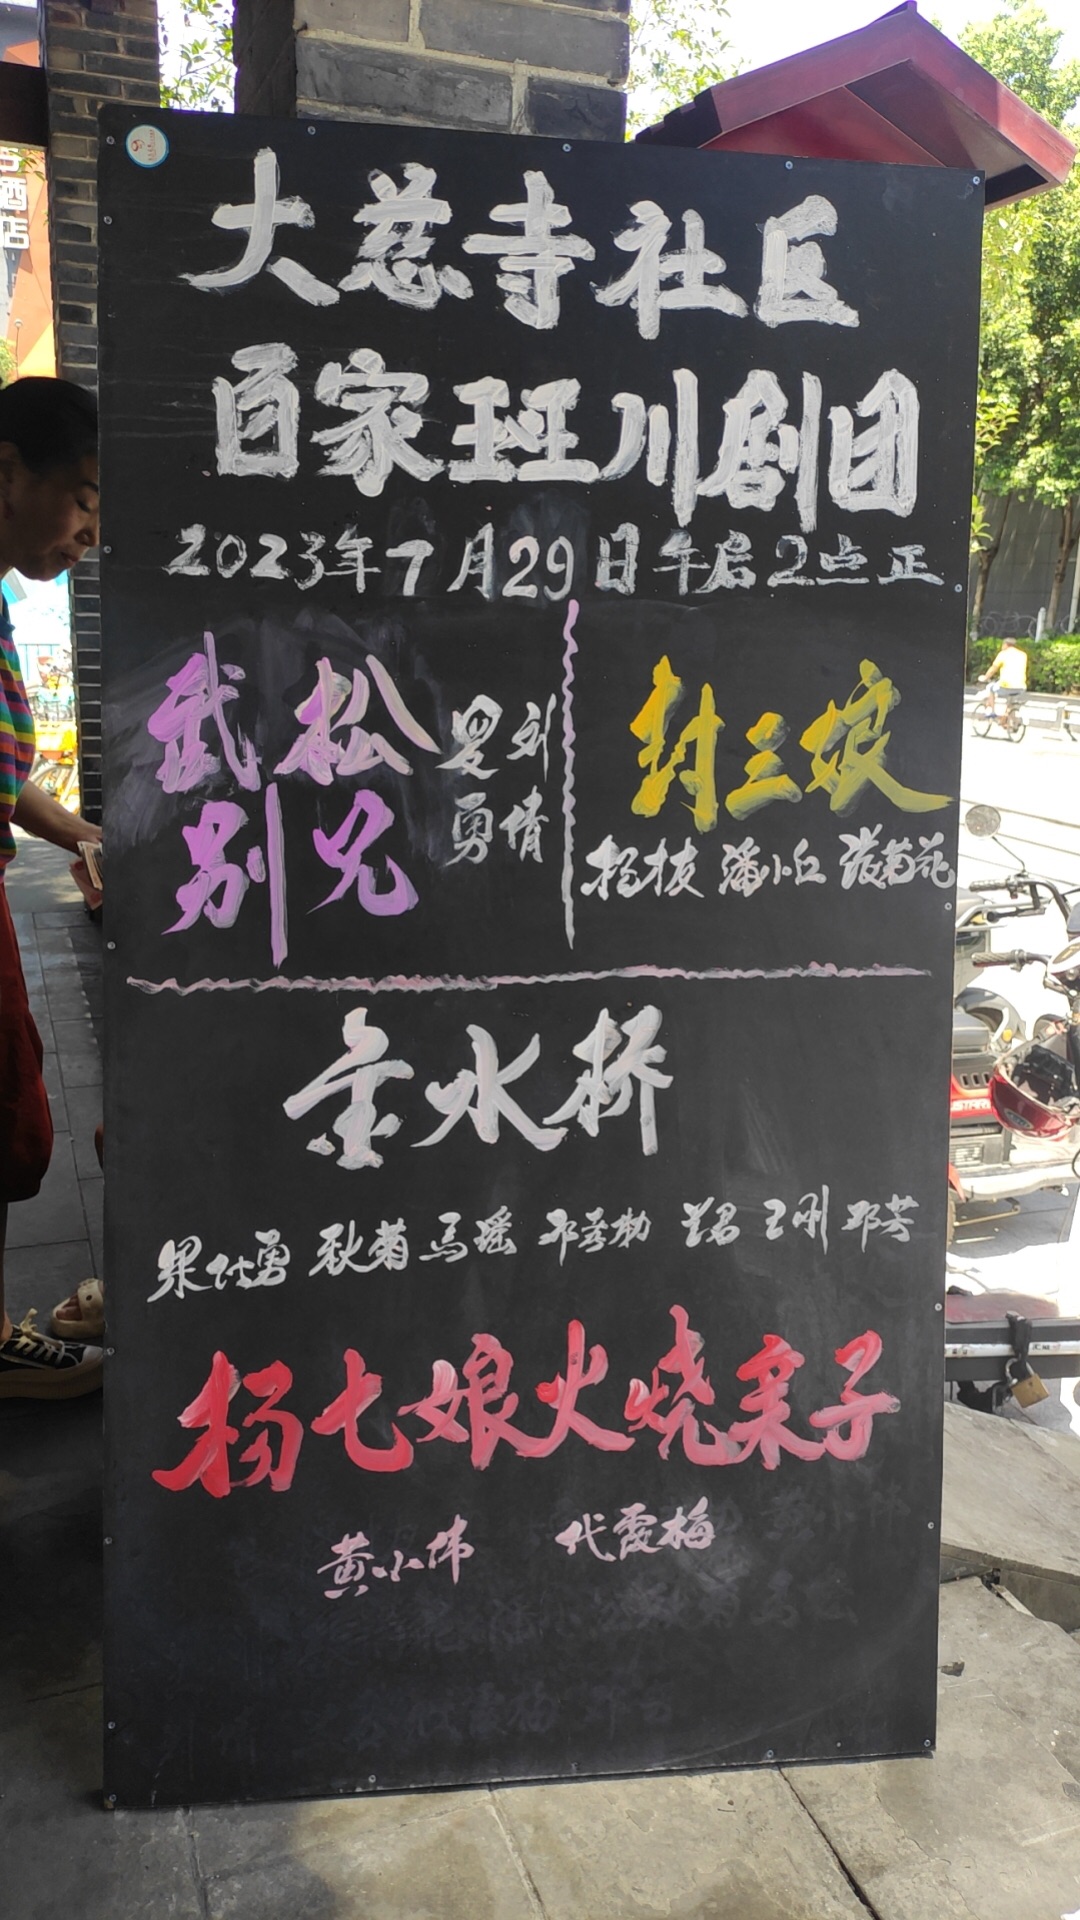 大慈寺社区
百家班川剧团
2023年7月29日午后2点正
武松
别兄
刘倩
吴勇
封三娘
杨枝 潘小丘 张菊花
金水桥
果仕勇 秋菊 马瑶 邓君 王刚 邓芳
杨七娘火烧亲子
黄小伟 代霞梅
酒店